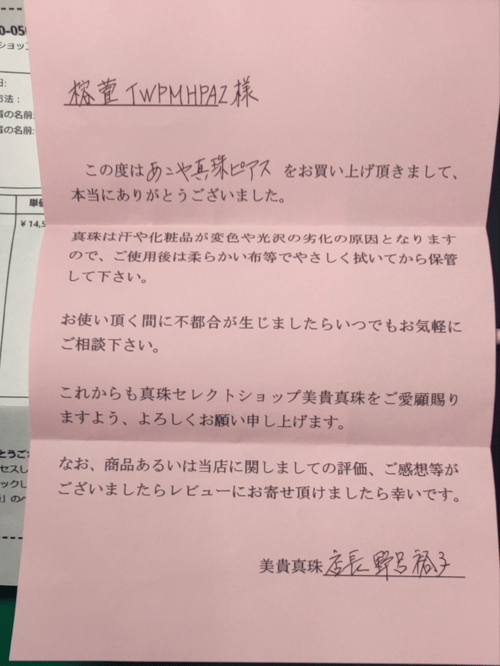 榕萱 TWPMHPAZ 様
この度はあこや真珠ピアス をお買い上げ頂きまして、
本当にありがとうございました。
真珠は汗や化粧品が変色や光沢の劣化の原因となります
ので、ご使用後は柔らかい布等でやさしく拭いてから保管
して下さい。
お使い頂く間に不都合が生じましたらいつでもお気軽に
ご相談下さい。
これからも真珠セレクトショップ美貴真珠をご愛顧賜り
ますよう、よろしくお願い申し上げます。
なお、商品あるいは当店に関しましての評価、ご感想等が
ございましたらレビューにお寄せ頂けましたら幸いです。
美貴真珠 店長 野呂裕子
ショップ
方法：
の名前:
の名前:
単価
￥14,5